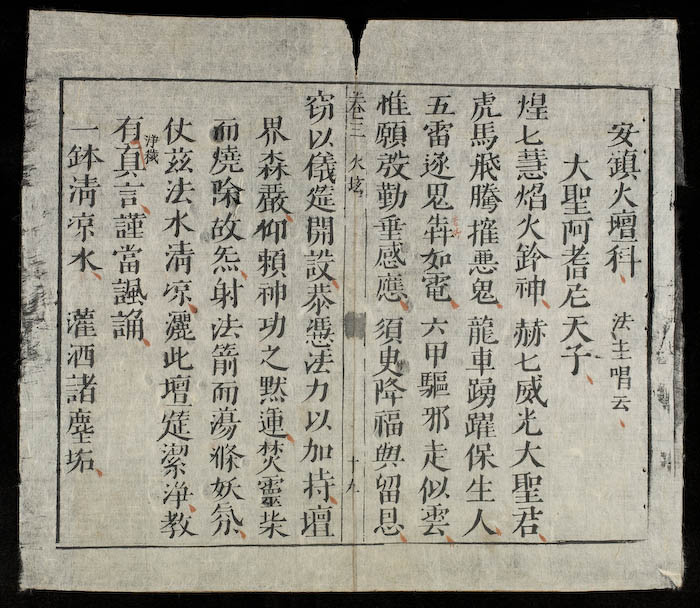 安鎮火壇科　法主唱云
大聖阿耆尼天子
煌匕慧焰火鈴神　赫匕威光大聖君
虎馬飛騰摧惡鬼　龍車踴躍保生人
五雷逐鬼犇如電　六甲驅邪走似雲
惟願殷勤垂感應　須臾降福與留恩
卷三　火坛　十九
窃以儀筵開設恭慿法力以加持壇
界森嚴仰賴神功之默運焚靈柴
而燒除故炁射法箭而蕩滌妖氛
仗兹法水清凉灑此壇筵潔净教
淨穢
有真言謹當諷誦
一鉢清凉水　灌洒諸塵垢